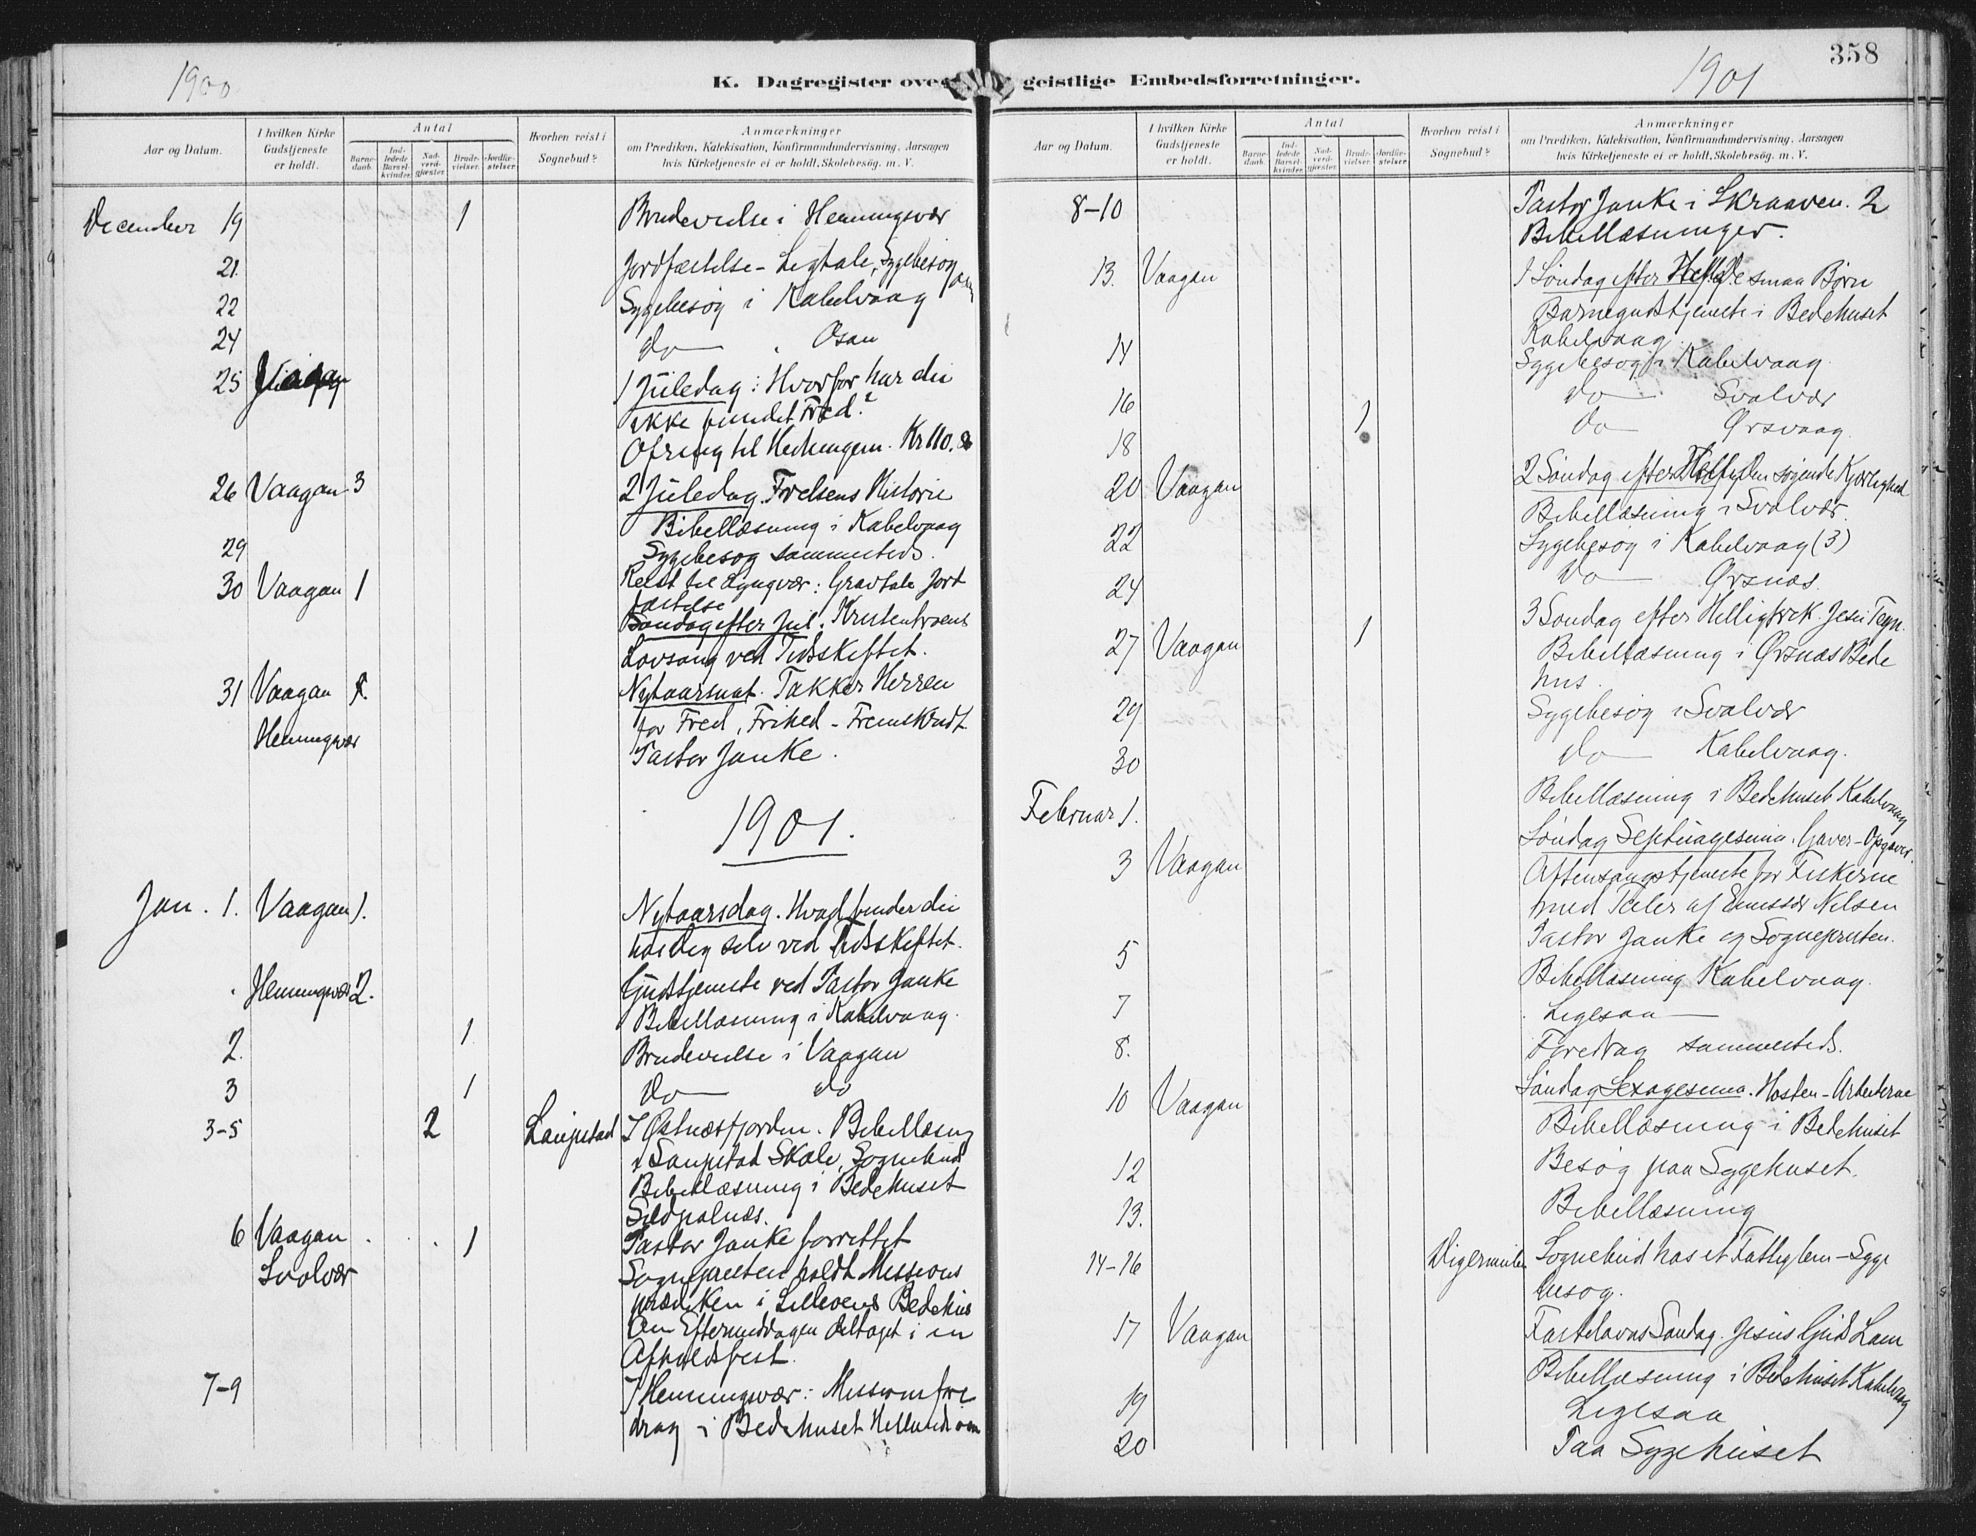 1900
K. Dagregister over
Aar og Datum.
I hvilken Kirke Gudstjeneste er holdt.
Antal
Barne-daab.
Ind-ledede Barsel-kvinder.
Nad-verd-gjæster.
Brude-vielser.
Jordfæ-stelser.
Hvorhen reist i Sognebud?
Anmærkninger
om Prædiken, Katekisation, Konfirmandundervisning, Aarsagen
hvis Kirketjeneste ei er holdt, Skolebesøg. m. V.
December 19 1 Brudevielse i Henningsvær
21. Jordfæstelse - Ligtale, Sygebesøg
22 Sygebesøg i Kabelvaag
24 do — Osan
25 Vaagan 1 Juledag: Hvorfor har du
ikke fundet Fred?
Ofring til Hedningem. Kr 110.
26 Vaagan 3 2 Juledag. Frelsens Historie
Bibellæsning i Kabelvaag
29 Sygebesøg sammesteds.
30 Vaagan 1 Reist til Lyngvær: Gravtale Jord
fæstelse
Søndag efter Jul. Kristentroens
Lovsang ved Tidsskiftet.
31 Vaagan Nytaarsnat. Takker Herren
for Fred, Frihed - Fremskridt
Henningsvær Pastor Janke.
1901.
Jan. 1. Vaagan 1. Nytaarsdag. Hvad finder du
hos dig selv ved Tidsskiftet.
Henningsvær 2. Gudstjeneste ved Pastor Janke
Bibellæsning i Kabelvaag.
2. 1 Brudevielse i Vaagan
3 1 do — do
3-5 2 Laupstad I Østnæsfjorden. Bibellæsng
i Laupstad Skole, Sognebud
Bibellæsning i Bedehuset
Sildpolnæs.
6 Vaagan 1 Pastor Janke forrettet
Svolvær Sognepresten holdt Missions
prædiken i Bedehus
Om Eftermiddagen deltaget i en
Afholdsfest.
7-9 I Henningsvær: Missionsfore
drag i Bedehuset
358
1901
geistlige Embedsforretninger.
Aar og Datum.
I hvilken Kirke Gudstjeneste er holdt.
Antal
Barne-daab.
Ind-ledede Barsel-kvinder.
Nad-verd-gjæster.
Brude-vielser.
Jordfæ-stelser.
Hvorhen reist i Sognebud?
Anmærkninger
om Prædiken, Katekisation, Konfirmandundervisning, Aarsagen
hvis Kirketjeneste ei er holdt, Skolebesøg. m. V.
8-10 Pastor Janke i Skraaven. 2
Bibellæsninger.
13. Vaagan 1 Søndag efter De smaa Børn
Barnegudstjeneste i Bedehuset
Kabelvaag
14 Sygebesøg i Kabelvaag.
16 1 do — Svolvær
18 do Ørsvaag.
20 Vaagan 2 Søndag efter Den søgende Kjærlighed
Bibellæsning i Svolvær.
22 Sygebesøg i Kabelvaag (3)
24 do — Ørsnæs.
27 Vaagan 1 3 Søndag efter Helligtrek. Jesu Tegn.
Bibellæsning i Ørsnæs Bede
hus.
29 Sygebesøg i Svolvær
30 do — Kabelvaag.
Februar 1. Bibellæsning i Bedehuset Kabelvaag
3 Vaagan Søndag Septuagesima. Gaver - Opgaver.
Aftensangstjeneste for Fiskerne
med Taler af Emissær Nilsen
Pastor Janke og Sognepresten.
5 Bibellæsning Kabelvaag.
7 Ligesaa —
8. Foredrag sammesteds.
10 Vaagan Søndag Sexagesima. Høsten - Arbeiderne
Bibellæsning i Bedehuset
12 Besøg paa Sygehuset.
13. Bibellæsning
14-16 Digermulen Sognebud hos et Fattiglem - Syge
besøg.
17 Vaagan Fastelavns Søndag. Jesus Guds Lam
Bibellæsning i Bedehuset Kabelvaag
19 Ligesaa
20 Paa Sygehuset